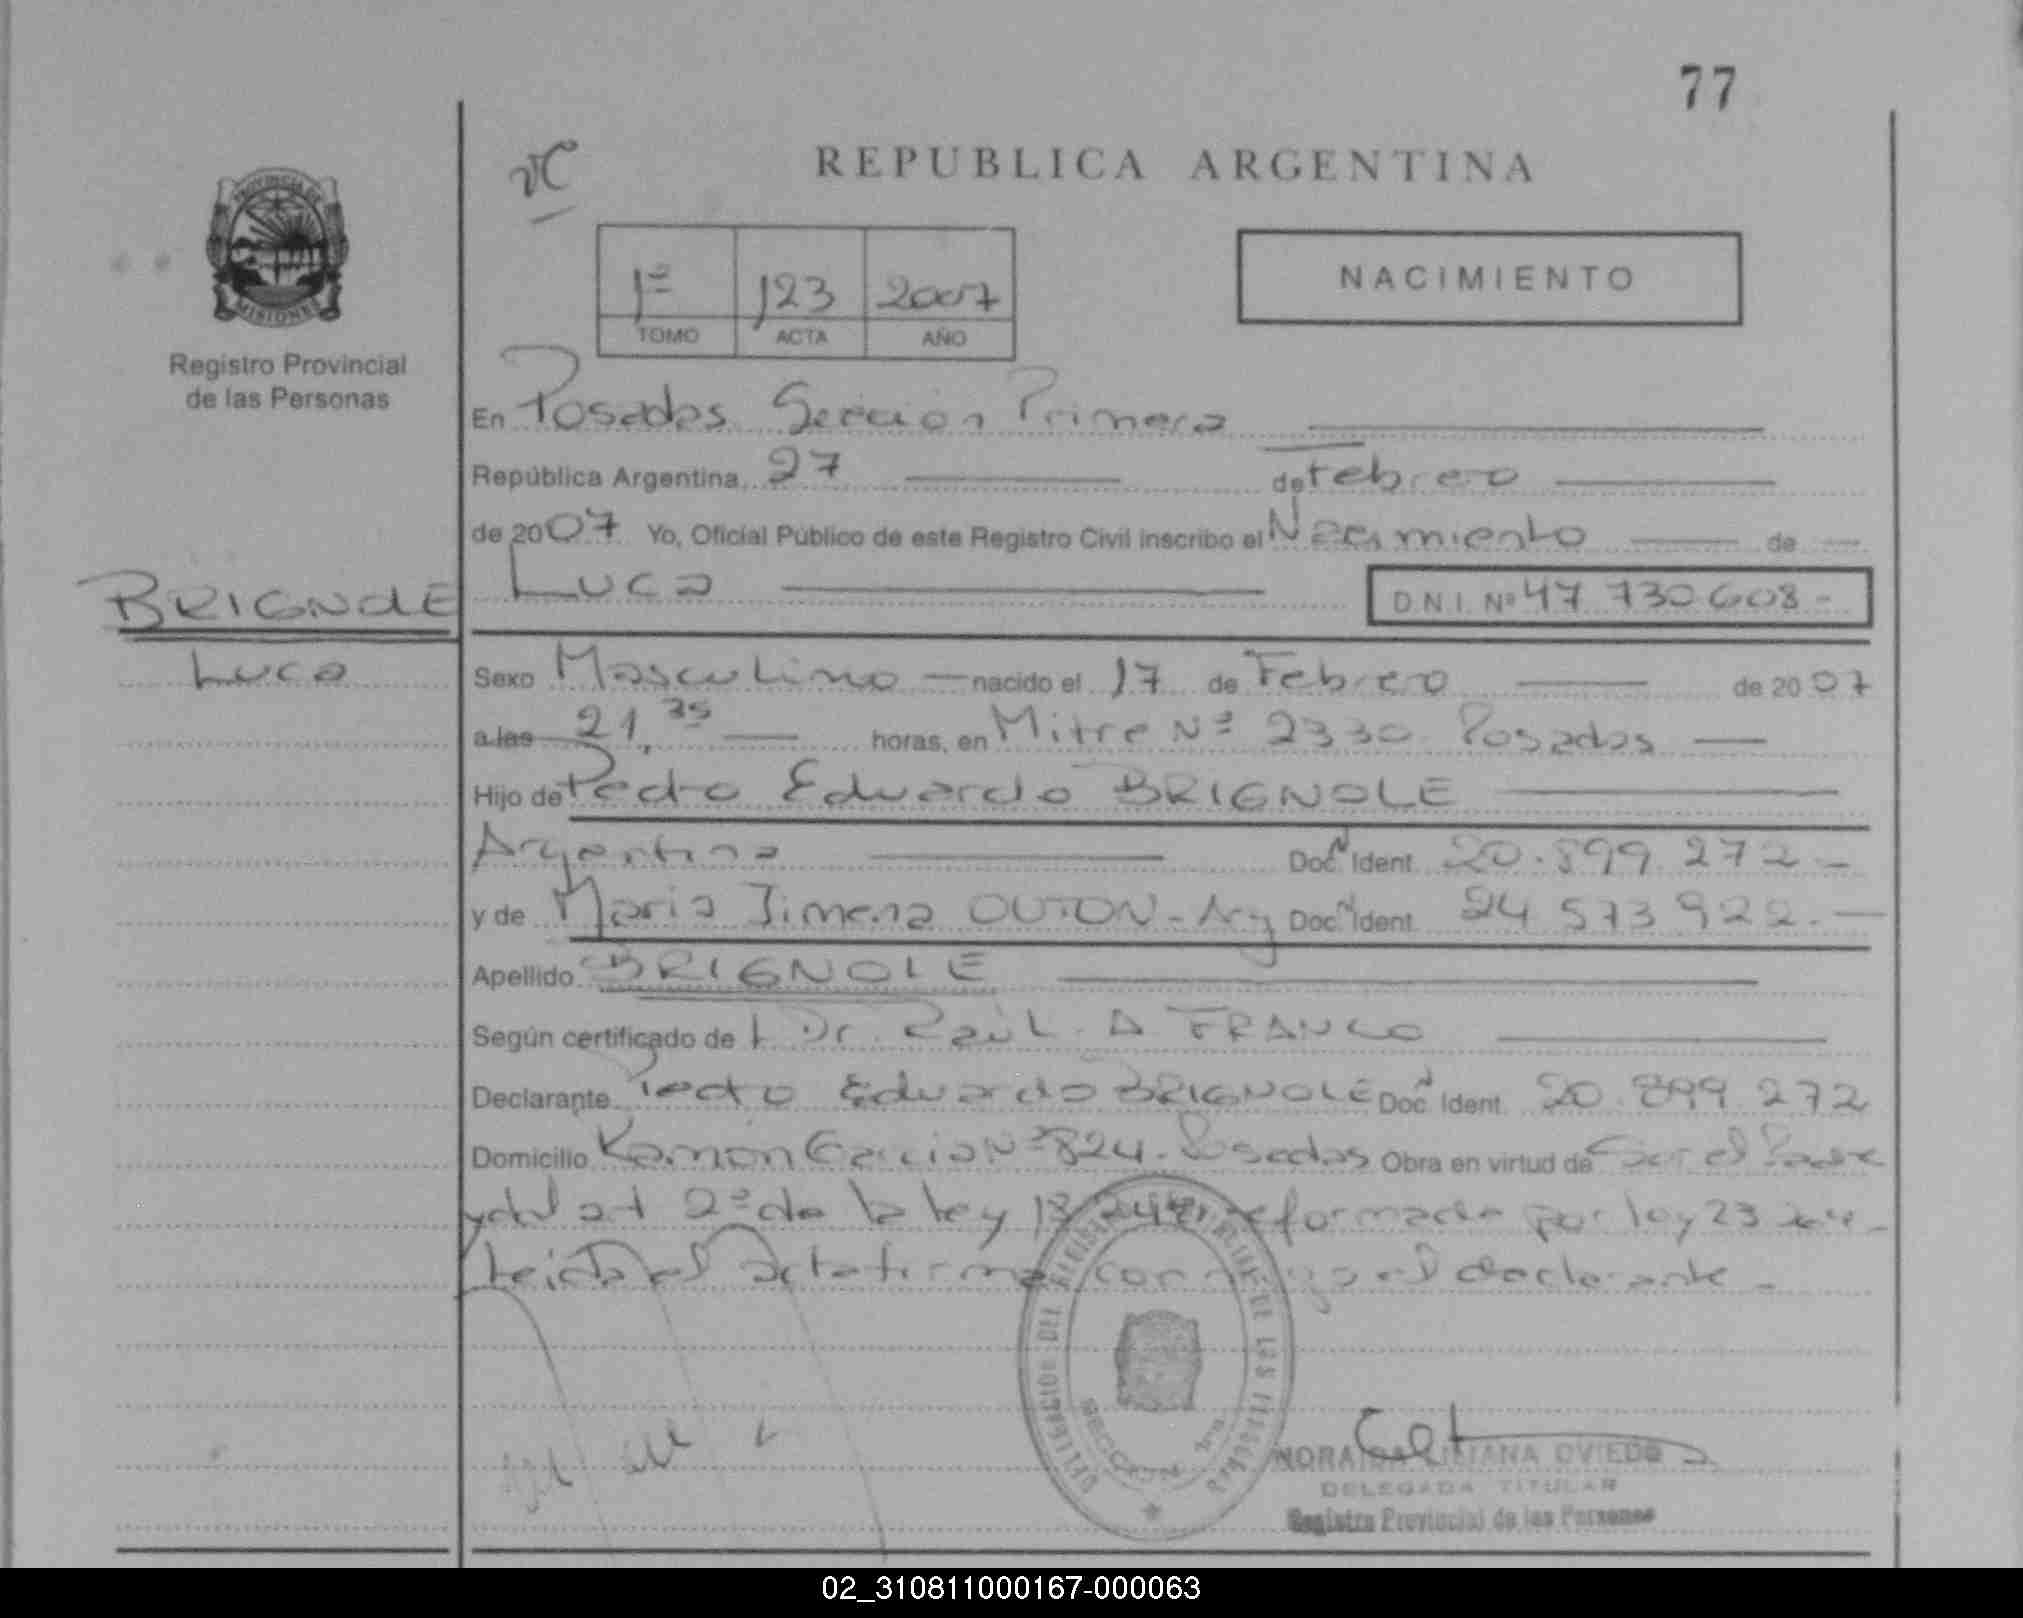 77
REPUBLICA ARGENTINA
PROVINCIA DE
MISIONES
Registro Provincial
de las Personas
1º 123 2007
TOMO ACTA AÑO
NACIMIENTO
En Posadas Sección Primera
República Argentina, 27 de Febrero
de 2007 Yo, Oficial Público de este Registro Civil inscribo el Nacimiento de
BRIGNOLE
Luca D.N.I. Nº 47 730 608 -
Luca
Sexo Masculino nacido el 17 de Febrero de 2007
a las 21,35 horas, en Mitre Nº 2330 Posadas
Hijo de Pedro Eduardo BRIGNOLE
Argentino Doc N Ident. 20.899.272 -
y de Maria Jimena OUTON - Arg Doc N Ident. 24 573 922. -
Apellido BRIGNOLE
Según certificado de l Dr. Raúl A FRANCO
Declarante Pedro Eduardo BRIGNOLE Doc N Ident. 20.899 272
Domicilio Ramón Garcia Nº 824. Posadas Obra en virtud de Ser el Padre
y del art 2º de la ley 18.248, reformada por ley 23 264 -
Leida el acta firma conmigo el declarante -
DELEGACION DEL REGISTRO DE LAS PERSONAS
SECCION 1ra
LILIANA OVIEDO
DELEGADA TITULAR
Registro Provincial de las Personas
02_310811000167-000063